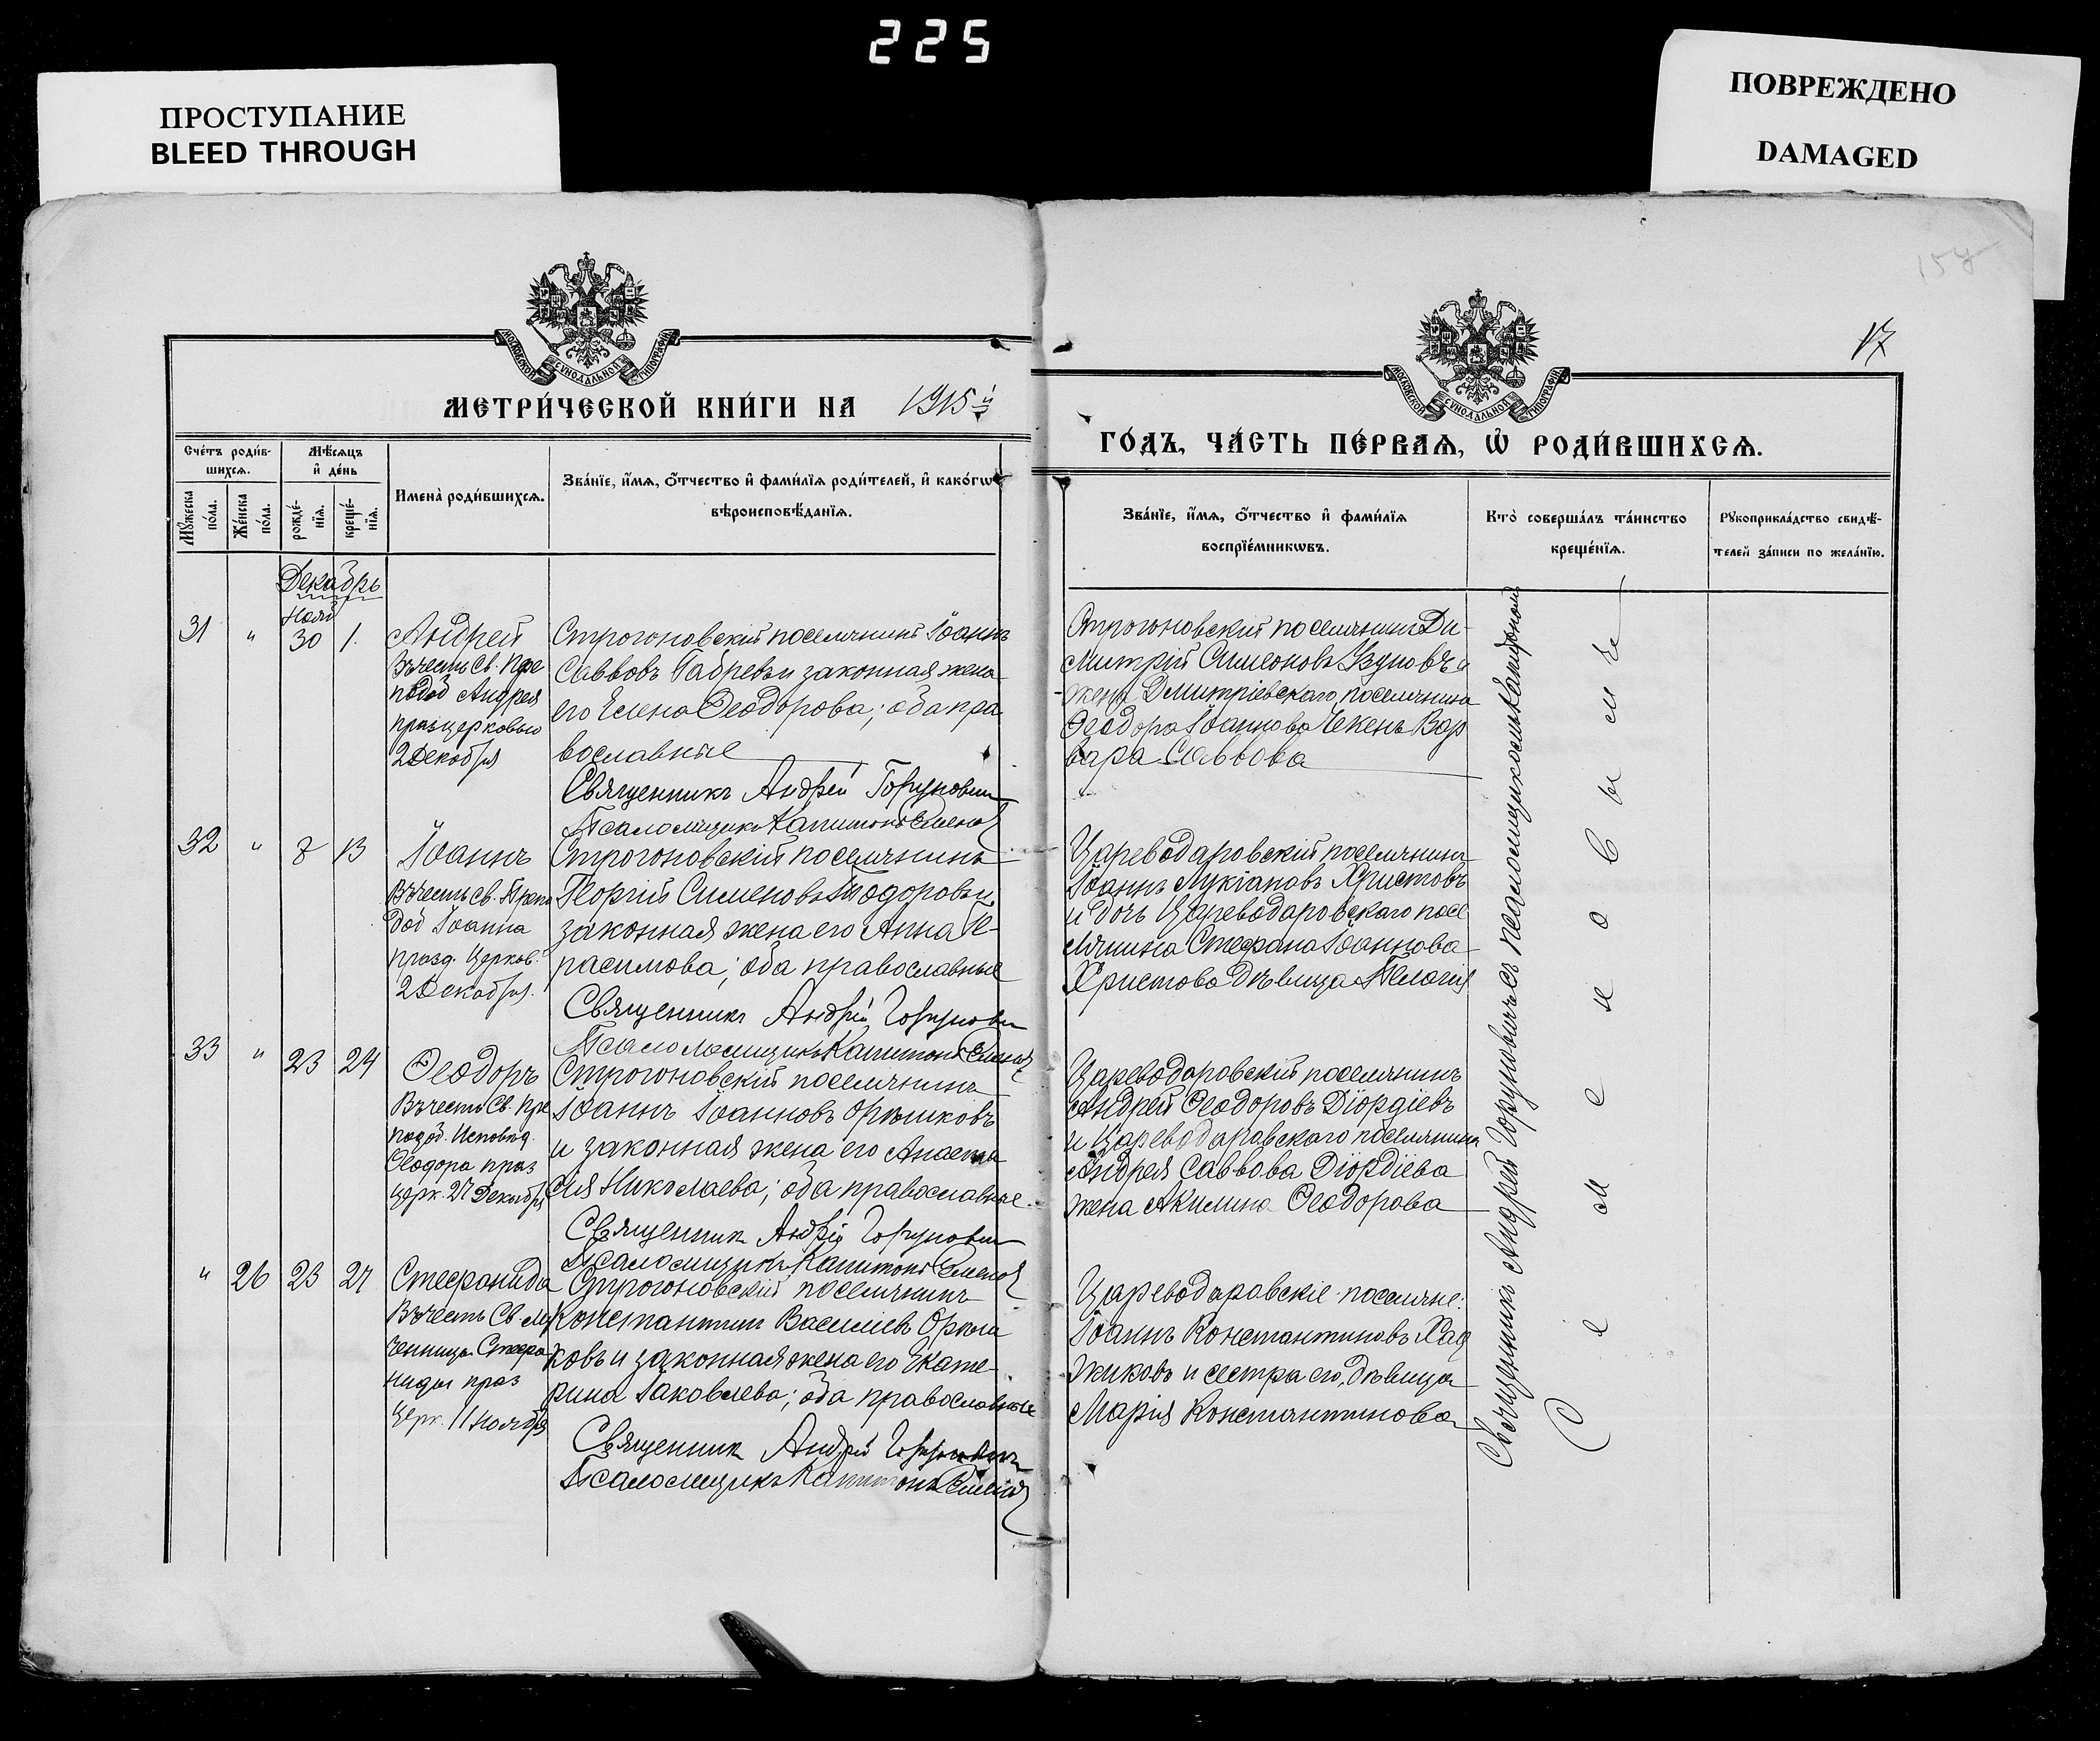 225
ПРОСТУПАНИЕ
BLEED THROUGH
ПОВРЕЖДЕНО
DAMAGED
17
МОСКОВСКОЙ СУНОДАЛЬНОЙ ТИПОГРАФІИ
МОСКОВСКОЙ СУНОДАЛЬНОЙ ТИПОГРАФІИ
МЕТРИ́ЧЕСКОЙ КНИ́ГИ НА 1915й
ГО́ДЪ, ЧА́СТЬ ПЕ́РВАѦ, Ѡ҆ РОДИ́ВШИХСѦ.
Сче́тъ роди́в-
шихсѧ.
Мꙋжеска по́ла.
Же́нска по́ла.
Мѣ́сѧцъ
и҆ де́нь
рожде́-
нїѧ.
креще́-
нїѧ.
Имена̀ роди́вшихсѧ.
Зва́нїе, и҆́мѧ, ѻ҆́тчество и҆ фами́лїѧ роди́телей, и҆ како́гѡ
вѣроисповѣ́данїѧ.
Зва́нїе, и҆́мѧ, ѻ҆́тчество и҆ фами́лїѧ
воспрїе́мникѡвъ.
Кто̀ соверша́лъ та́инство
креще́нїѧ.
Рꙋкоприкла́дство свидѣ́-
телей за́писи по жела́нїю.
Декабрь
Нояб
31 " 30 1. Андрей
Въ честь Св. Пре
подоб Андрея
праз церковью
2 Декабря
Строгоновскій поселянинъ Іоаннъ
Саввовъ и законная жена
его Елена Ѳеодорова; оба пра
вославные
Священникъ Андрей Горуновичъ
Псаломщикъ Капитонъ
Строгоновскій поселянинъ Ди-
митрій Симеоновъ Узуновъ и
жена Дмитріевскаго поселянина
Ѳеодора Іоаннова Чекень Вар
вара Саввова
32 " 8 13 Іоаннъ
Въ честь Св. Препо
доб Іоанна
празд. церков.
2 Декабря.
Строгоновскій поселянинъ
Георгій Симеоновъ Тодоровъ и
законная жена его Анна Ге-
расимова; оба православные
Священникъ Андрей Горуновичъ
Псаломщикъ Капитонъ
Цареводаровскій поселянинъ
Іоаннъ Лукіановъ Христовъ
и дочь Цареводаровскаго посе
лянина Стефана Іоаннова
Христова дѣвица Пелагія
33 " 23 24 Ѳеодоръ
Въ честь Св. Пре
подоб. Исповѣд.
Ѳеодора праз
церк. 27 Декабря
Строгоновскій поселянинъ
Іоаннъ Іоанновъ Орѣшковъ
и законная жена его Анаста
сія Николаева; оба православные.
Священникъ Андрей Горуновичъ
Псаломщикъ Капитонъ
Цареводаровскій поселянинъ
Андрей Ѳеодоровъ Діордіевъ
и Цареводаровскаго поселянина
Андрея Саввова Діордіева
жена Акилина Ѳеодорова
" 26 23 27 Стефанида
Въ честь Св. Му
ченицы Стефа
ниды праз
церк. 11 Ноября
Строгоновскій поселянинъ
Константинъ Василіевъ Орѣш
ковъ и законная жена его Екате-
рина Іаковлева; оба православные
Священникъ Андрей Горуновичъ
Псаломщикъ Капитонъ
Цареводаровскіе поселяне:
Іоаннъ Константиновъ Хад
жиковъ и сестра его, дѣвица
Марія Константинова
Священникъ Андрей Горуновичъ съ псаломщикомъ Капитономъ